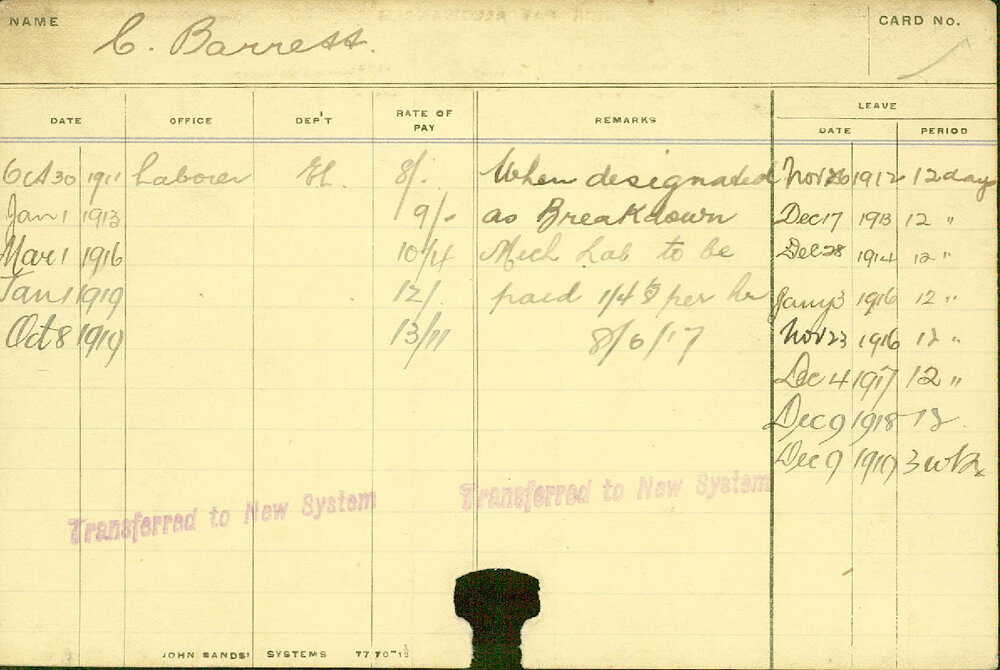 NAME
C. Barrett.
CARD No.
DATE OFFICE DEP'T RATE OF PAY REMARKS LEAVE
DATE PERIOD
Oct 30 1911 Laborer El. 8/. When designated Nov 26 1912 12 days
Jan 1 1913 9/- as Breakdown Dec 17 1913 12 "
Mar 1 1916 10/4 Mech Lab to be Dec 28 1914 12 "
Jan 1 1919 12/. paid 1/4 per hr Jany 3 1916 12 "
Oct 8 1919 13/11 8/6/17 Nov 23 1916 12 "
Dec 4 1917 12 "
Dec 9 1918 12
Dec 9 1919 3 wks
Transferred to New System
Transferred to New System
JOHN SANDS SYSTEMS 77 70-12